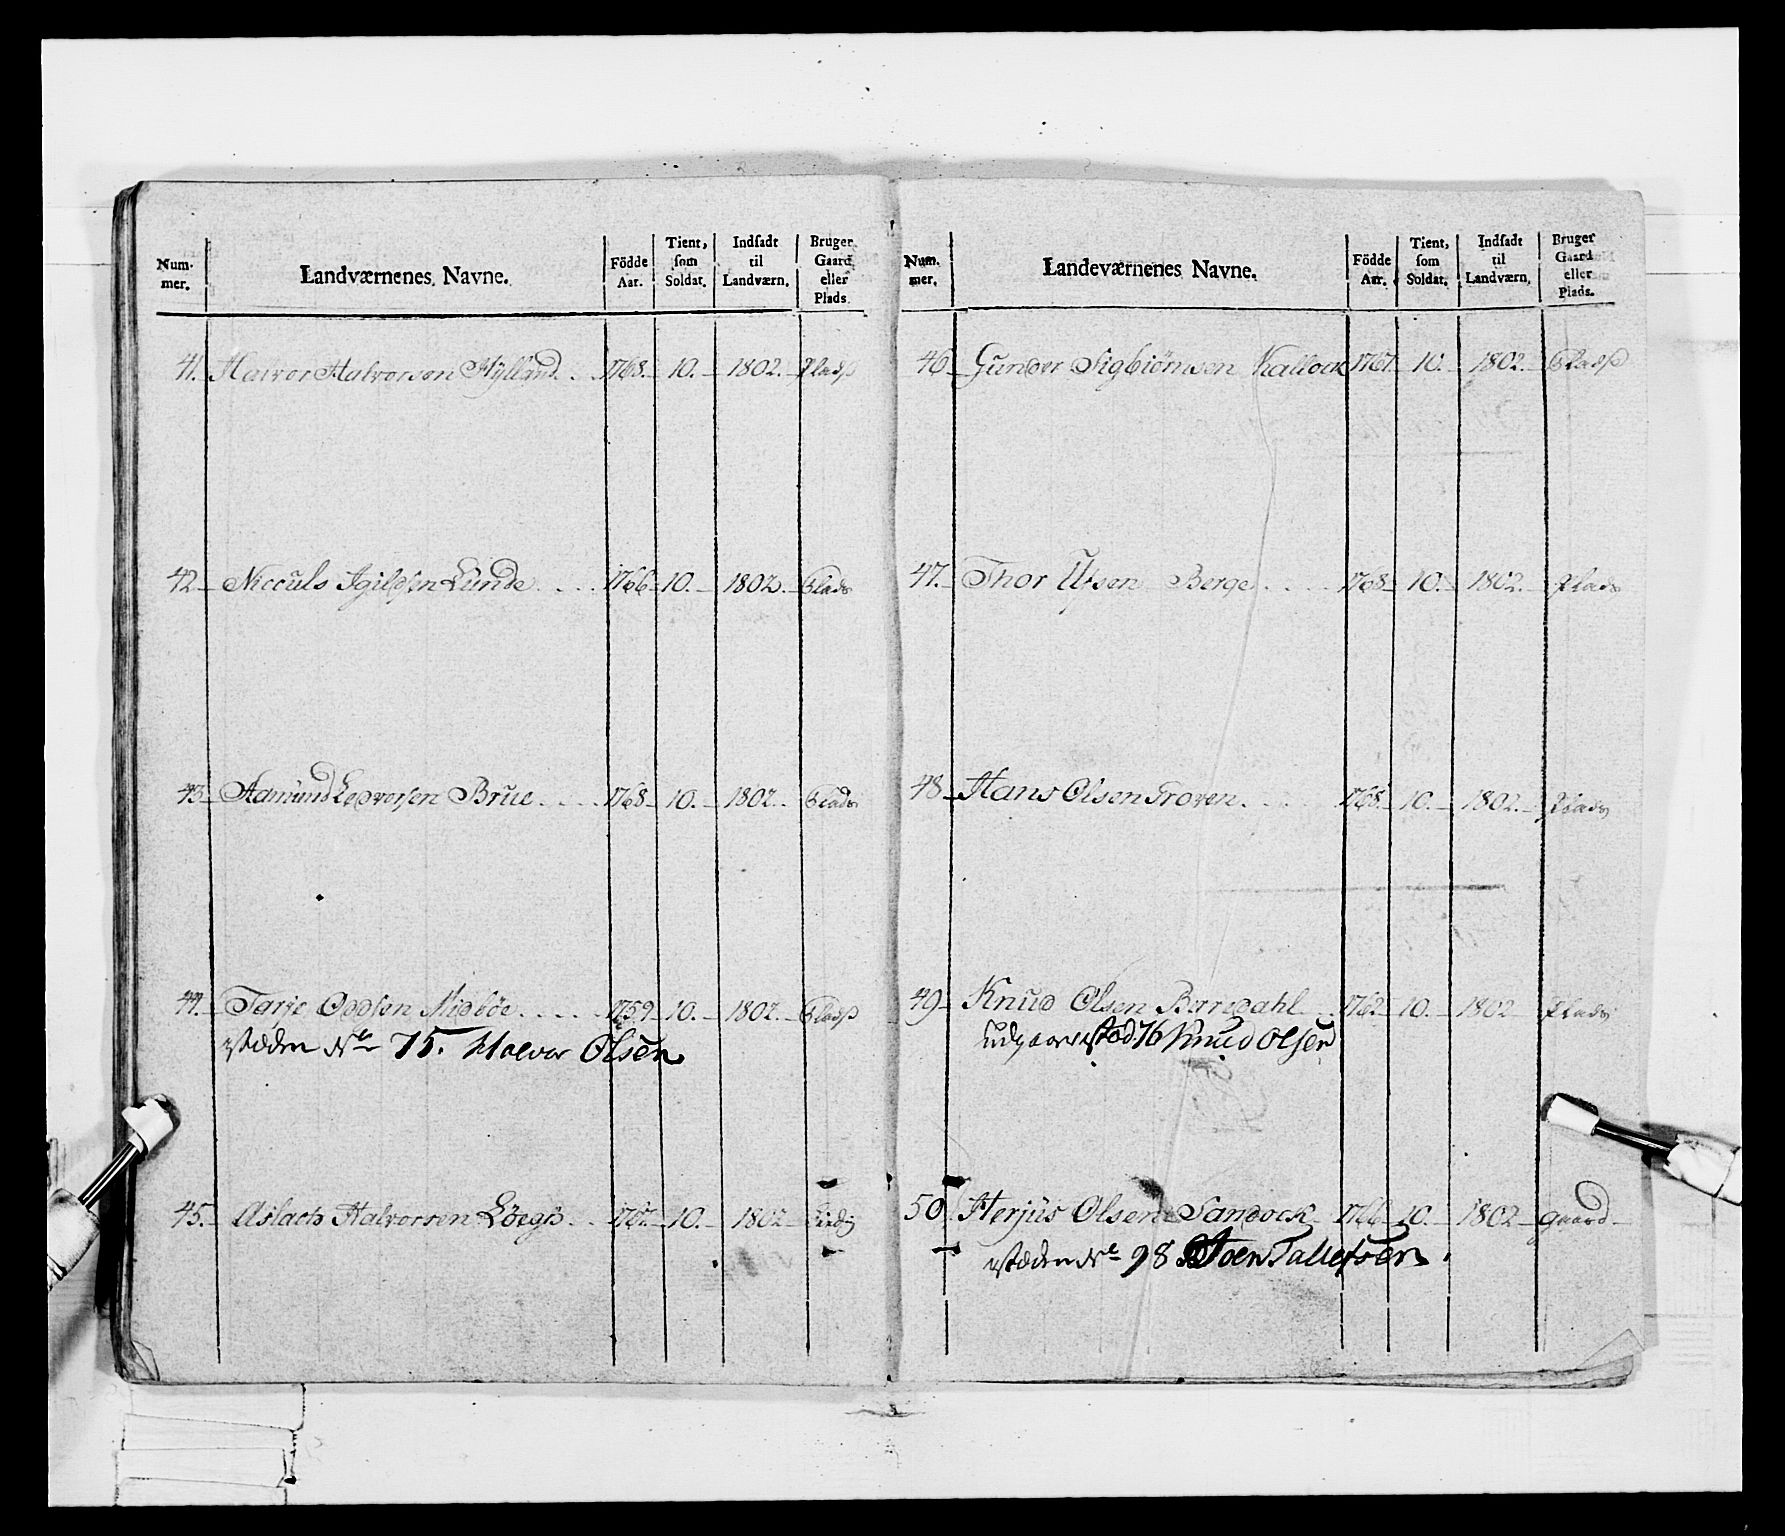 Num-
mer.
Landværnenes Navne.
Födde
Aar.
Tient,
som
Soldat.
Indsadt
til
Landværn.
Bruger
Gaard
eller
Plads
41. Halvor Halvorsen Hylland . 1768. 10. 1802. Pladß
42 Niculs Igilsen Lunde . . . . 1766 10. 1802. Plads
43 Aamund Ledvorsen Brue . . . . 1768 10. 1802. Plads
44. Tarje Oddsen Midböe . . . . . 1759 10. 1802. Pladß
75. Halvor Olsen
45. Aslach Halvorsen . . 10. 1802
Num.
mer.
Landeværnenes Navne.
Födde
Aar.
Tient,
som
Soldat.
Indsadt
til
Landværn,
Bruger
Gaard
eller
Plads.
46 Gunder Sigbiörnsen 1767 10. 1802. Pladß
47. Thor Ufsen Berge . . . . 1768 10. 1802. Plads
48 Hans Olsen Troven . . . 1768. 10. 1802. Plads
49 Knud Olsen . . 1762 10. 1802 Plads
76 Knud Olsen
50 Herjus Olsen Sandock 1766 10. 1802 gaard
98 Tallefsen